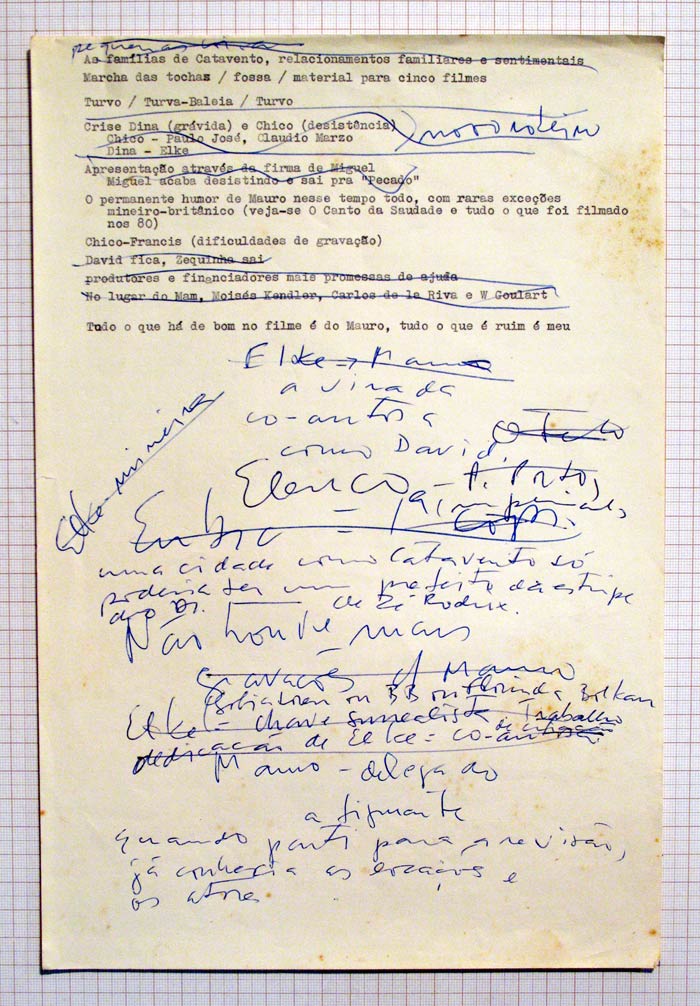 pequenas
As famílias de Catavento, relacionamentos familiares e sentimentais
Marcha das tochas / fossa / material para cinco filmes
Turvo / Turva-Baleia / Turvo
Crise Dina (grávida) e Chico (desistência)
novo roteiro
Chico - Paulo José, Claudio Marzo
Dina - Elke
Apresentação através da firma de Miguel
Miguel acaba desistindo e sai pra "Pecado"
O permanente humor de Mauro nesse tempo todo, com raras exceções
mineiro-britânico (veja-se O Canto da Saudade e tudo o que foi filmado
nos 80)
Chico-Francis (dificuldades de gravação)
David fica, Zequinha sai
produtores e financiadores mais promessas de ajuda
No lugar do Mam, Moisés Kendler, Carlos de la Riva e W Goulart
Tudo o que há de bom no filme é do Mauro, tudo o que é ruim é meu
Elke → Mauro
a virada
co-autora
como David.
Elke-mineira
Elenco -
uma cidade como Catavento só
poderia ter um prefeito da estirpe
do Dr. de Zé Rodrix.
Não houve mais
gravações Mauro
ou BB ou Florinda Bolkan
Elke = chave surrealista Trabalho
de criação
dedicação de Elke = co-autora
Mauro - delegado
a figurante
quando parti para a revisão,
já conhecia as locações e
os atores